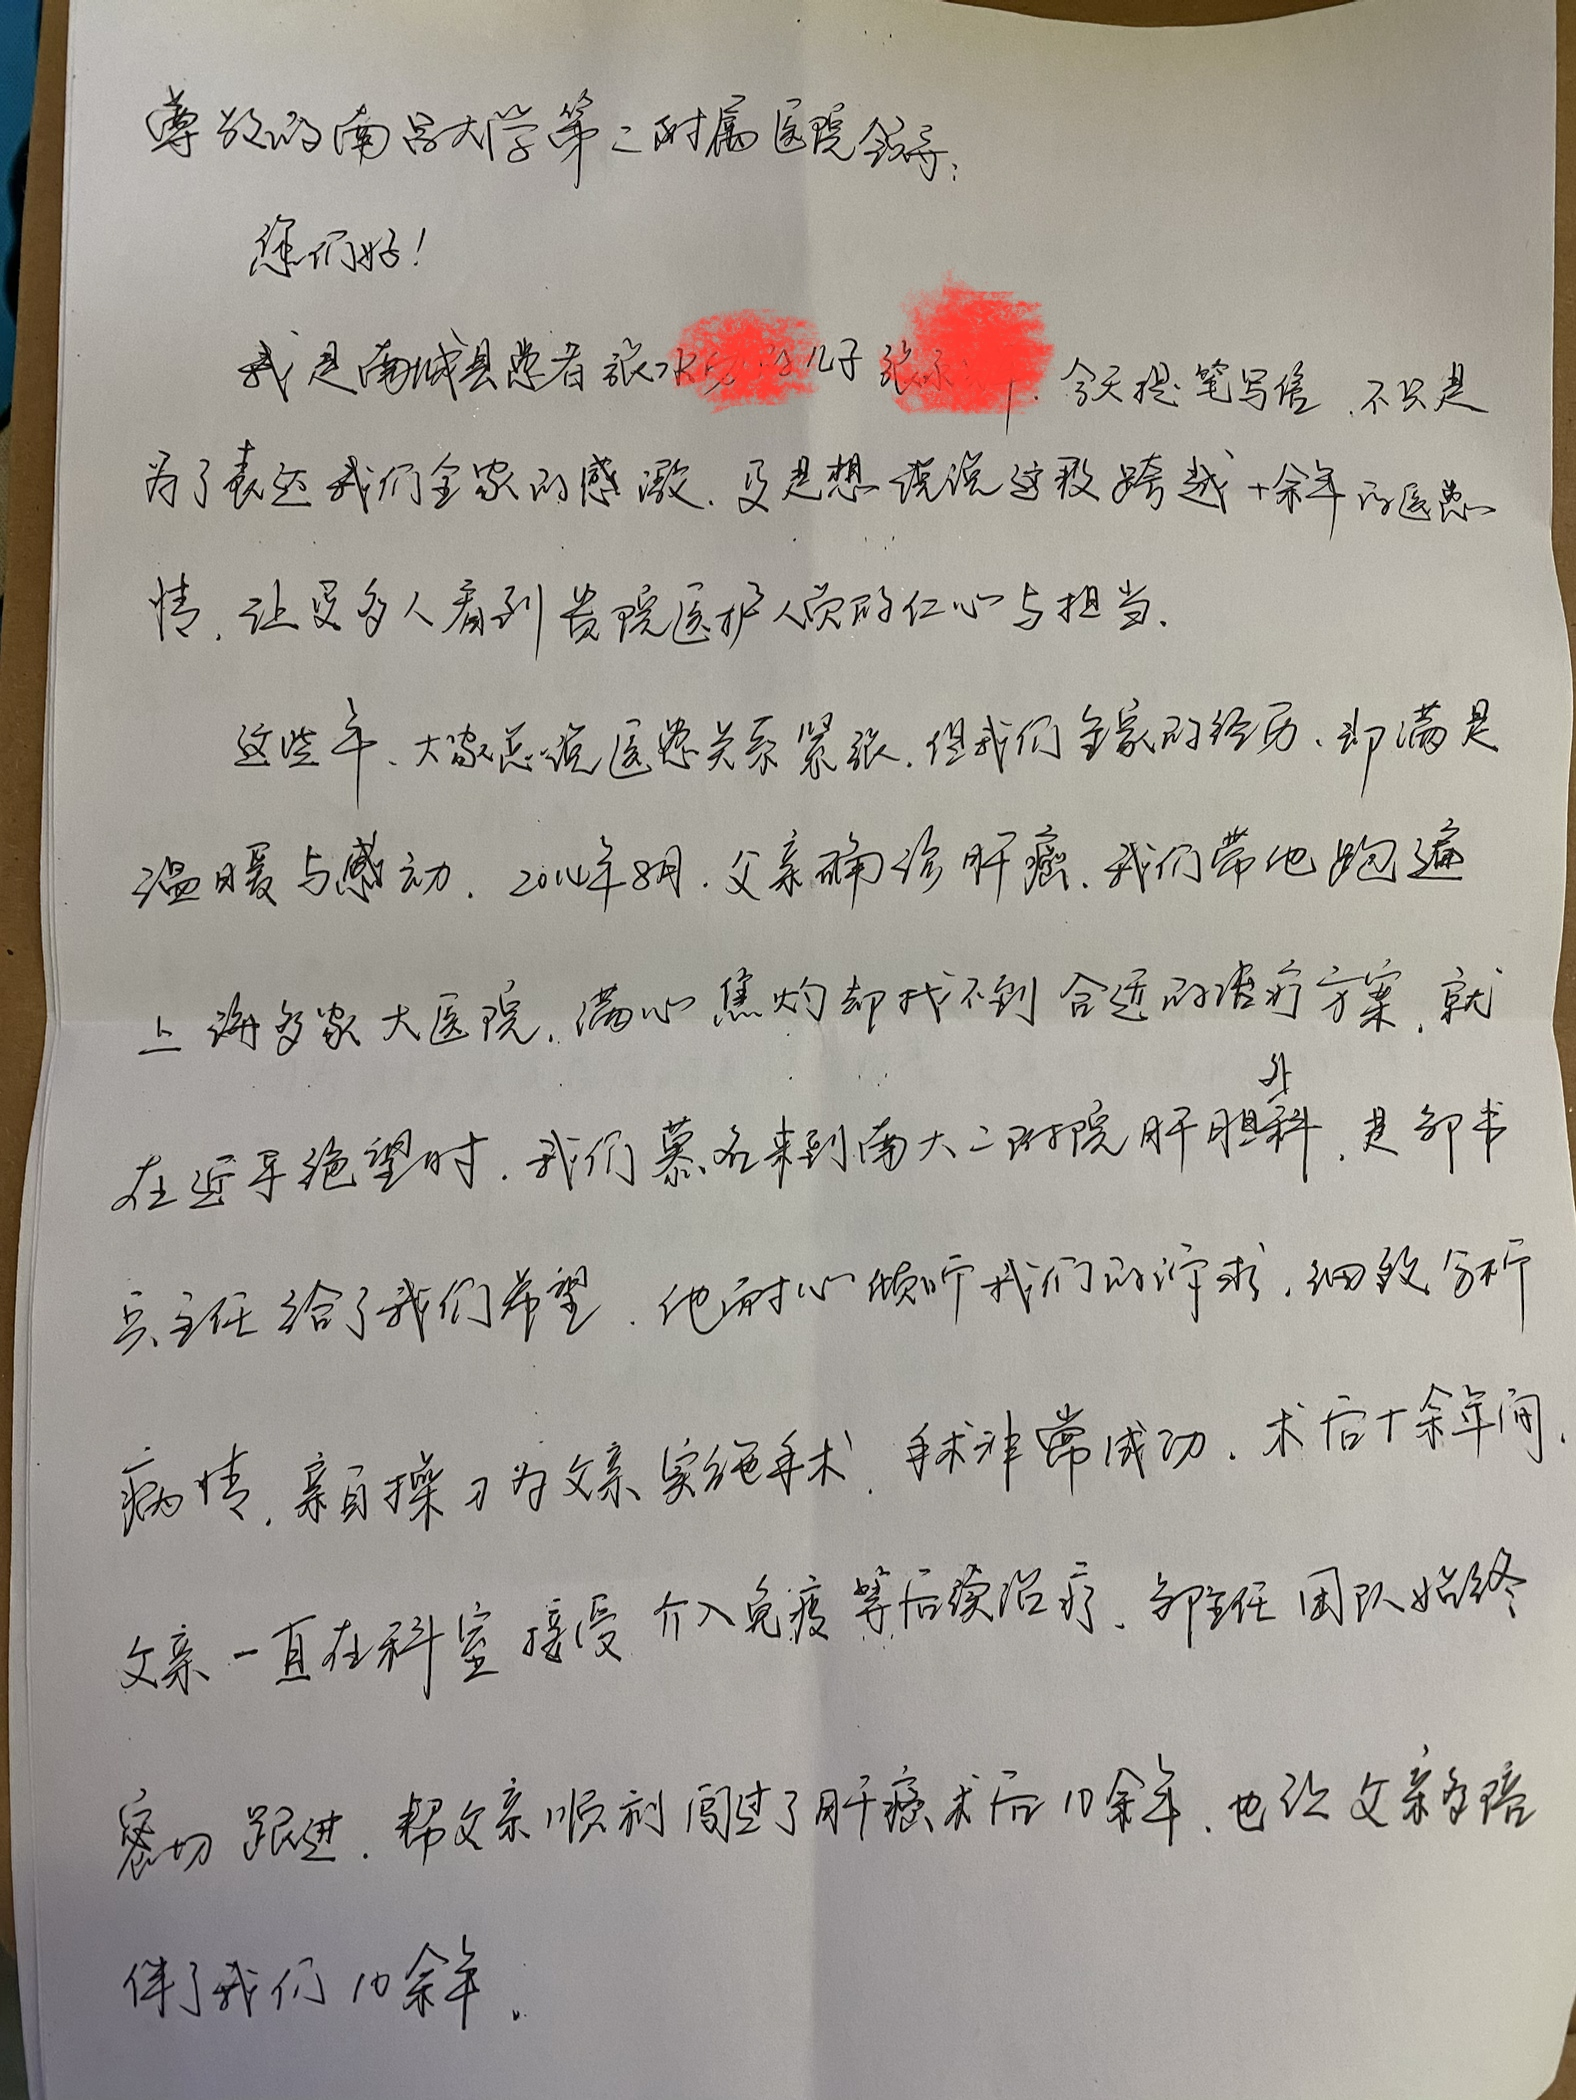 尊敬的南昌大学第二附属医院领导：
您们好！
我是南城县患者张 儿子张 ，今天提笔写信，不只是
为了表达我们全家的感激，更是想说说这段跨越十余年的医患
情，让更多人看到贵院医护人员的仁心与担当。
这些年、大家总说医患关系紧张，但我们全家的经历、却满是
温暖与感动．2014年8月，父亲确诊肝癌，我们带他跑遍
上海多家大医院，满心焦灼却找不到合适的治疗方案，就
在近乎绝望时，我们慕名来到南大二附院肝胆外科，是邬书
兵主任给了我们希望．他耐心倾听我们的诉求，细致分析
病情，亲自操刀为父亲实施手术，手术非常成功．术后十余年间，
父亲一直在科室接受介入免疫等后续治疗，邬主任团队始终
密切跟进，帮父亲顺利闯过了肝癌术后10余年，也让父亲多陪
伴了我们10余年。